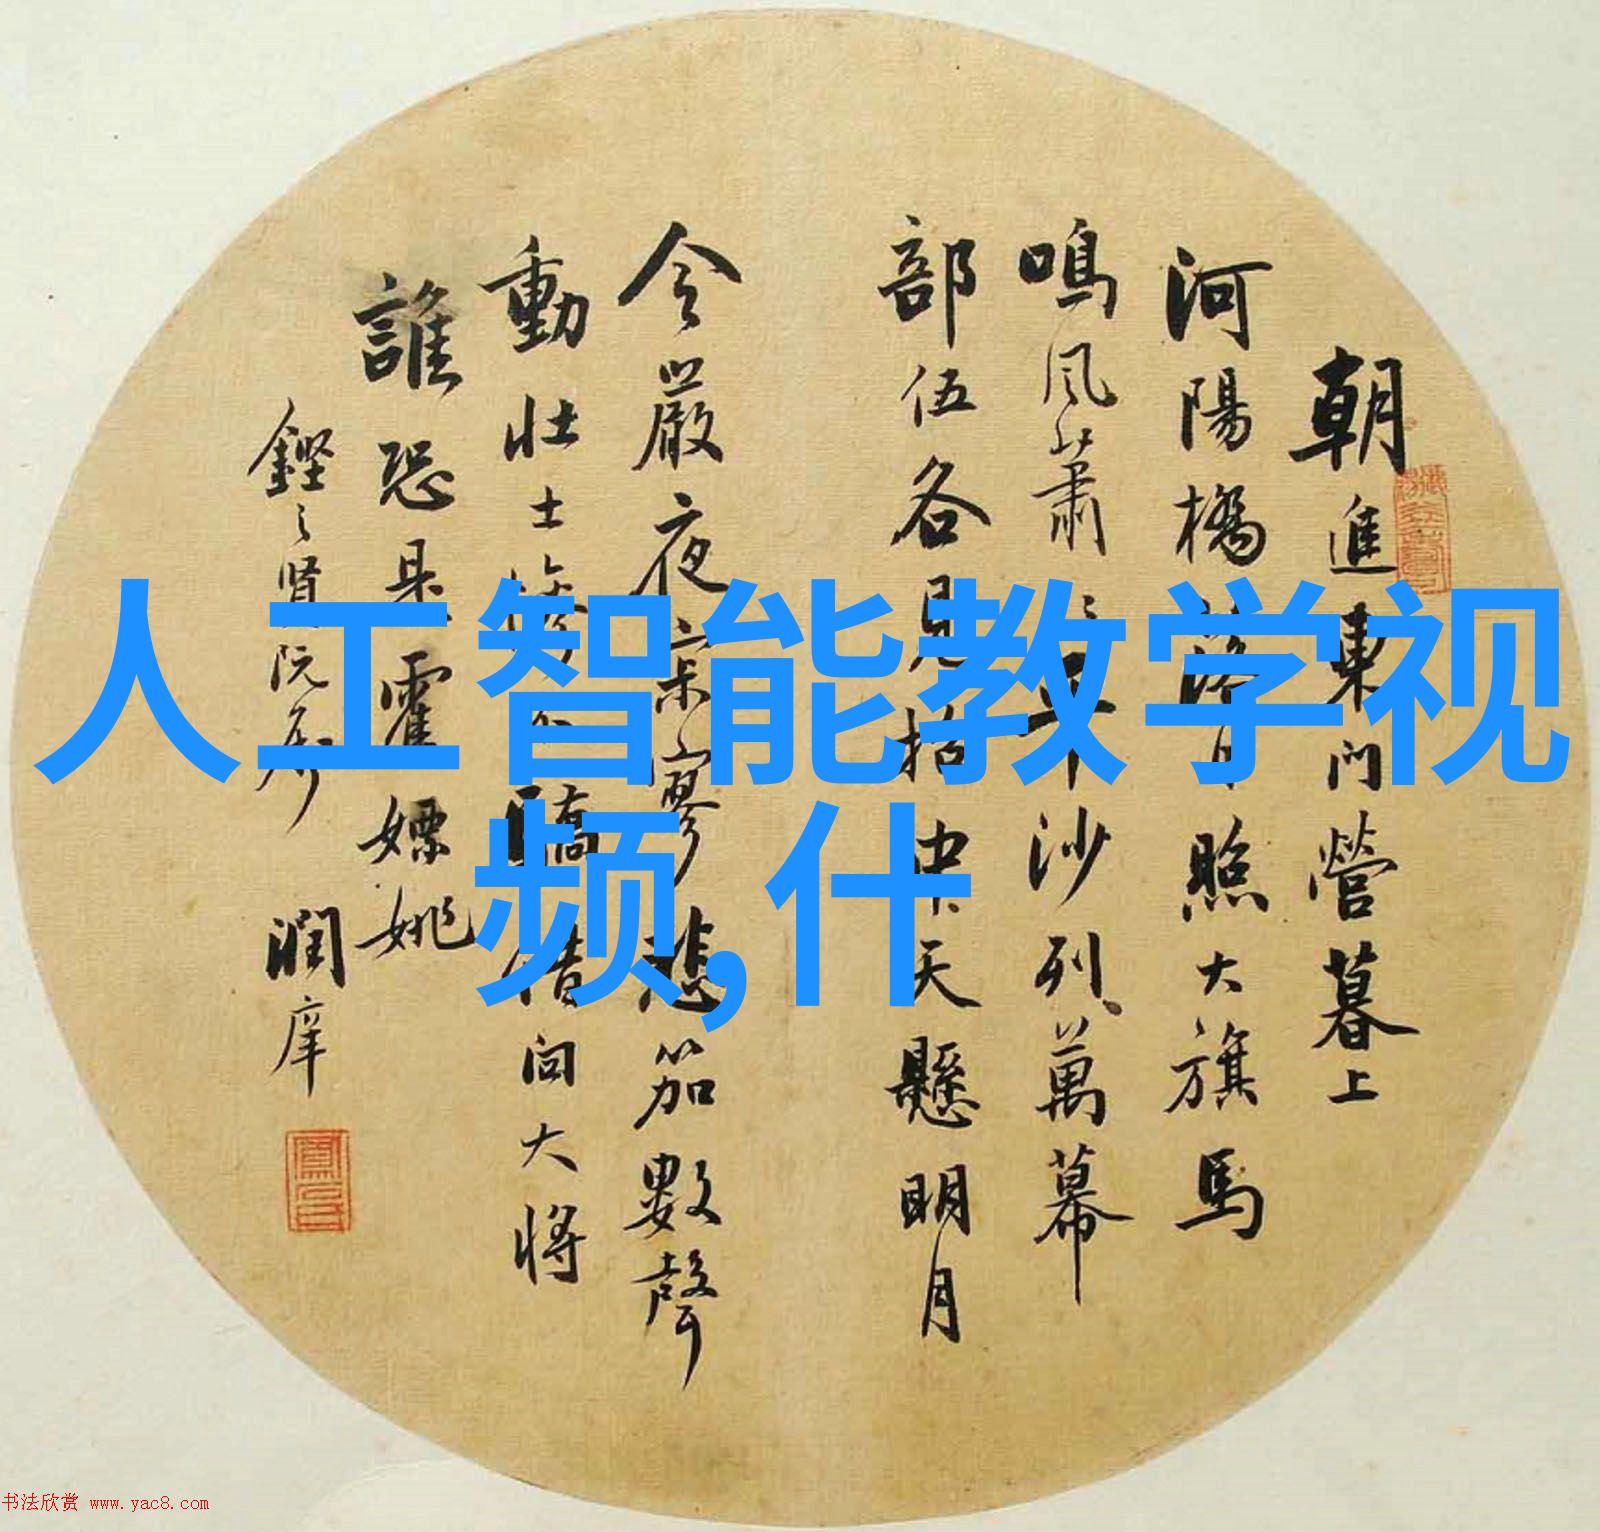 朝進東門營暮上
河陽橋落日照大旗馬
鳴風蕭〻平沙列萬幕
部伍各見招中天懸明月
令嚴夜寂寥悲笳數聲
動壯士慘不驕借問大將
誰恐是霍嫖姚
鏗之賢阮屬 潤庠
人工智能教学视
频,什
书法欣赏 www.yac8.com